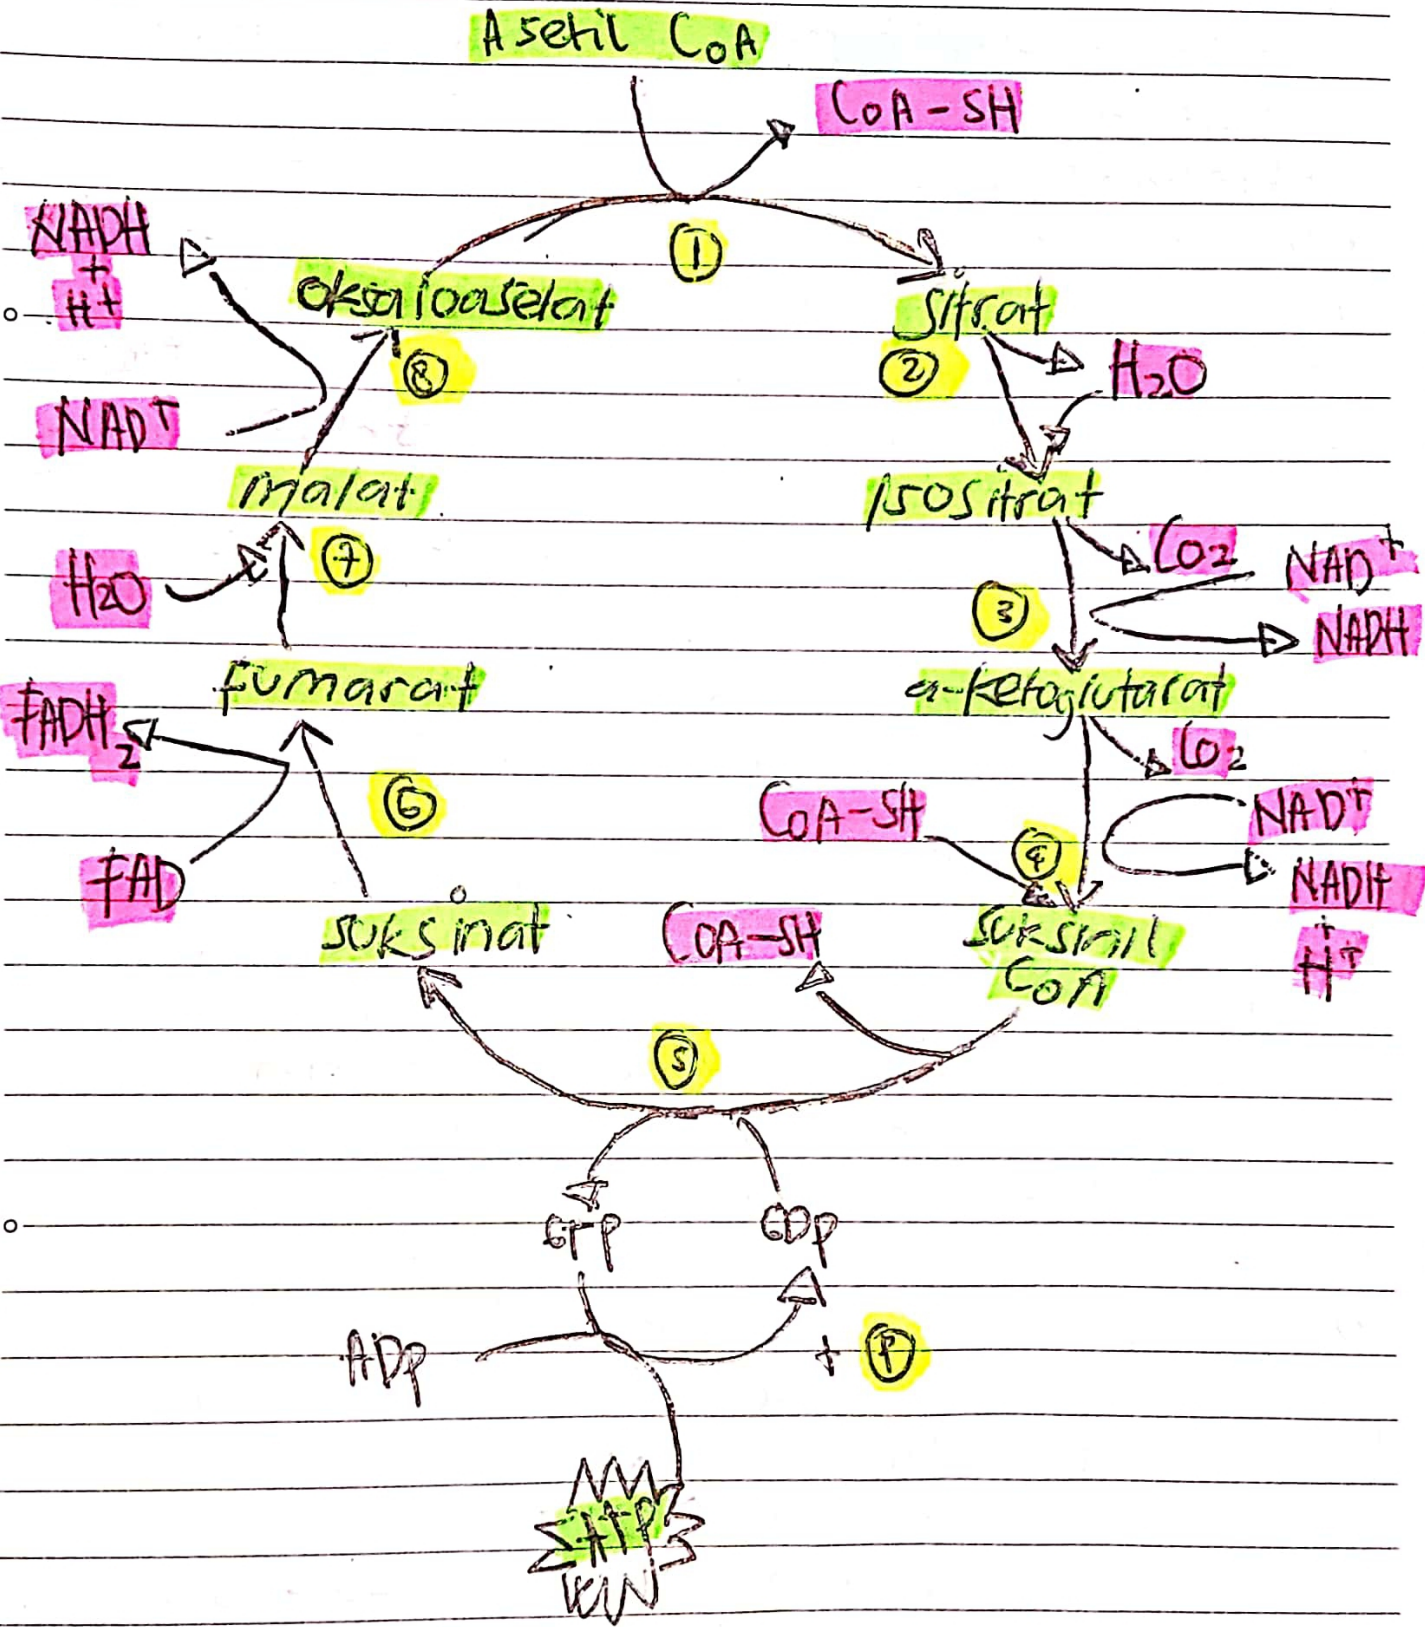 Asetil CoA
CoA-SH
NADH
+
H+
①
oksaloasetat
sitrat
⑧
②
H2O
NAD+
malat
isositrat
⑦
CO2
NAD+
H2O
③
NADH
fumarat
α-ketoglutarat
FADH2
CO2
⑥
CoA-SH
NAD+
④
FAD
NADH
+
H+
suksinat
CoA-SH
suksinil
CoA
⑤
GTP
GDP
ADP
+ Ⓟ
ATP